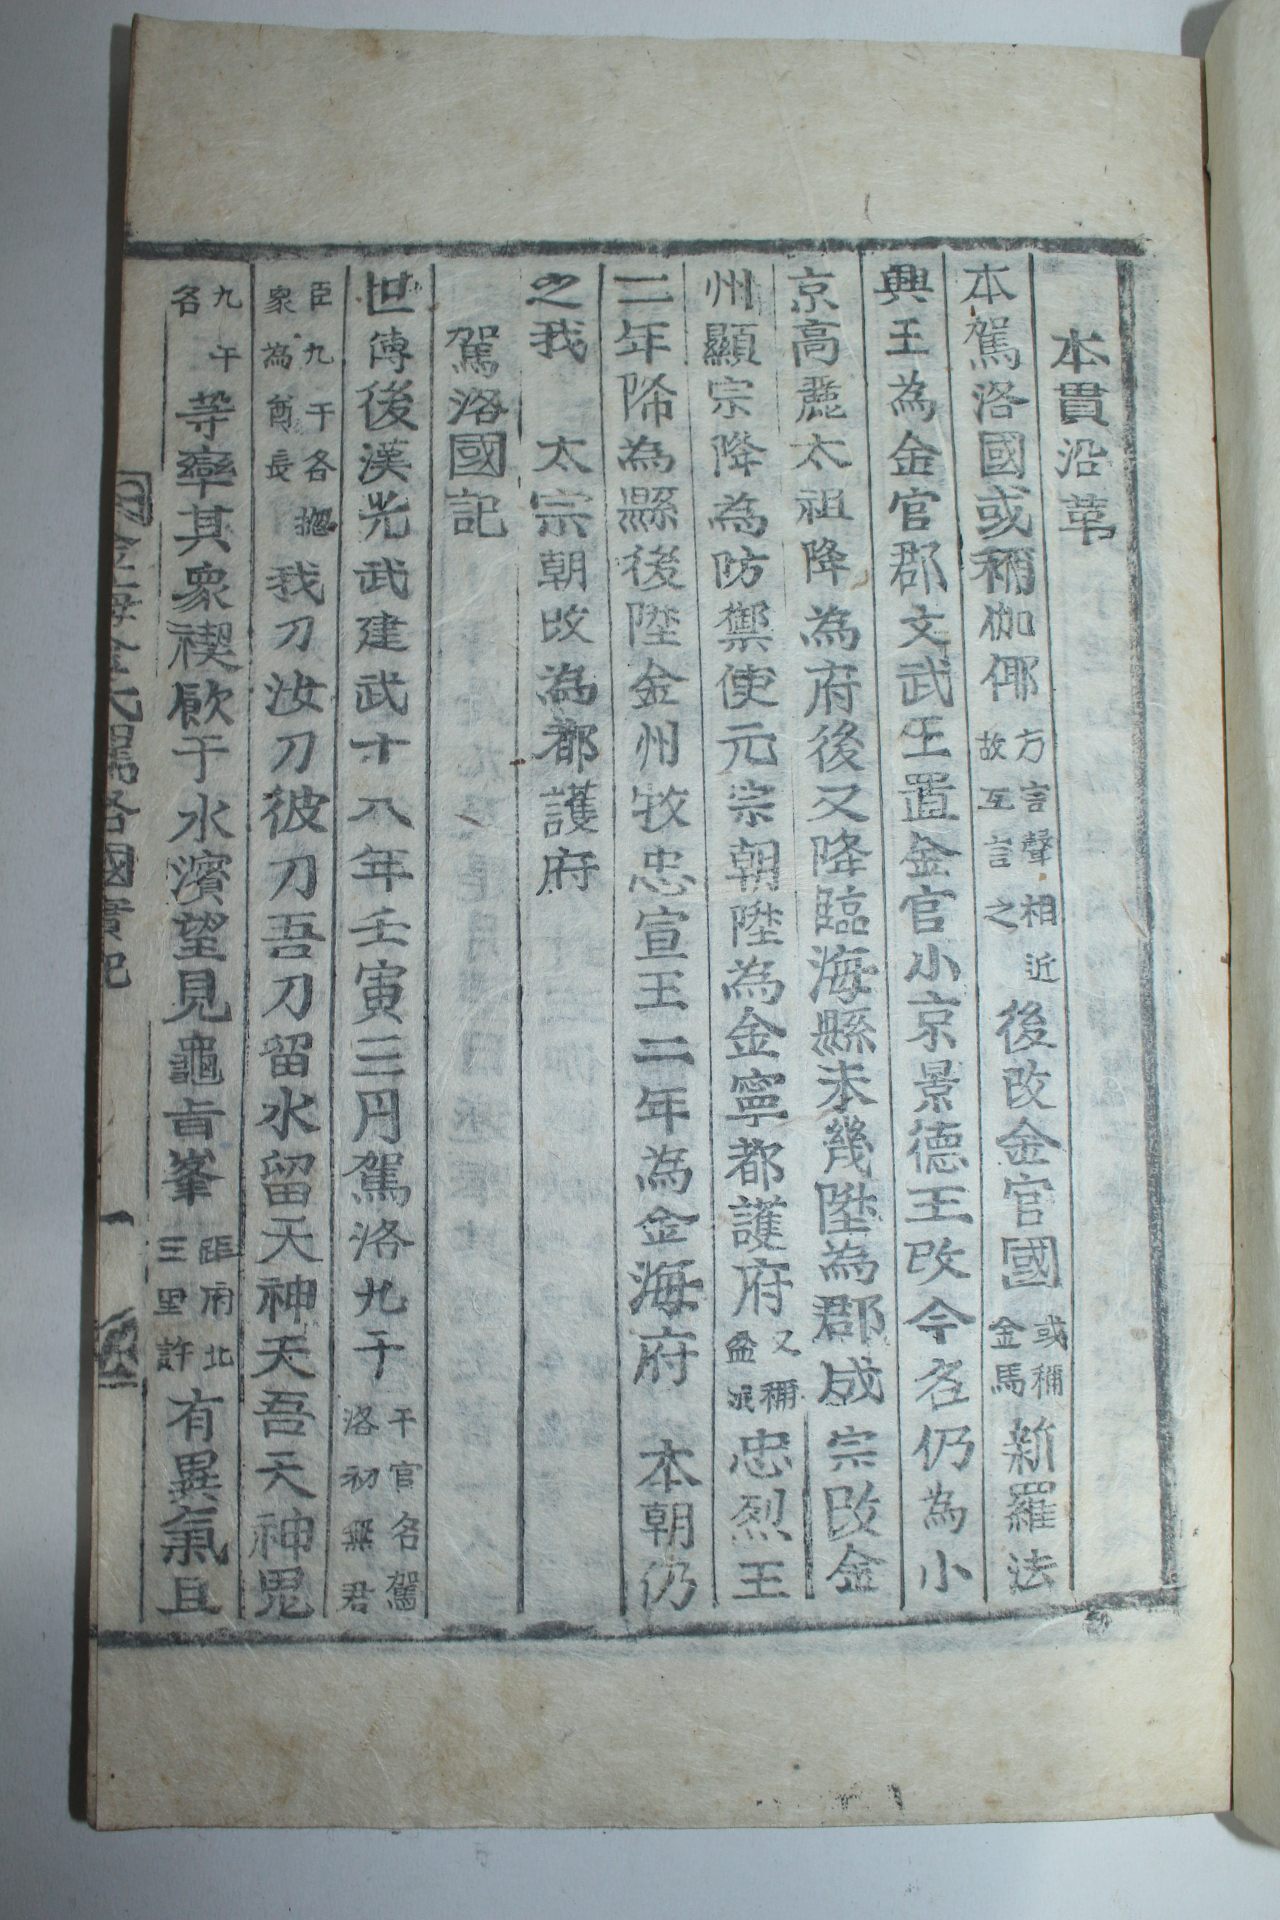 本貫沿革
本駕洛國或稱伽倻方言聲相近故互言之後改金官國或稱金馬新羅法
興王為金官郡文武王置金官小京景德王改今名仍為小
京高麗太祖降為府後又降臨海縣未幾陞為郡成宗改金
州顯宗降為防禦使元宗朝陞為金寧都護府又稱盆泯忠烈王
二年降為縣後陞金州牧忠宣王二年為金海府 本朝仍
之我 太宗朝改為都護府
駕洛國記
世傳後漢光武建武十八年壬寅三月駕洛九干干官名駕洛初無君
臣九干各摠衆為酋長我刀汝刀彼刀吾刀留水留天神天吾天神鬼
九干名等率其衆禊飮于水濱望見龜旨峯距府北三里許有異氣且
金海金氏駕洛國實記
一